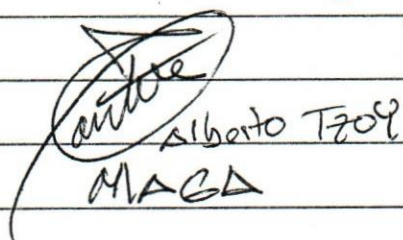 Alberto Tzoy
MAGA